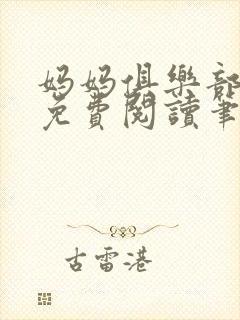 妈妈俱樂部
免費閱讀筆
古雷港